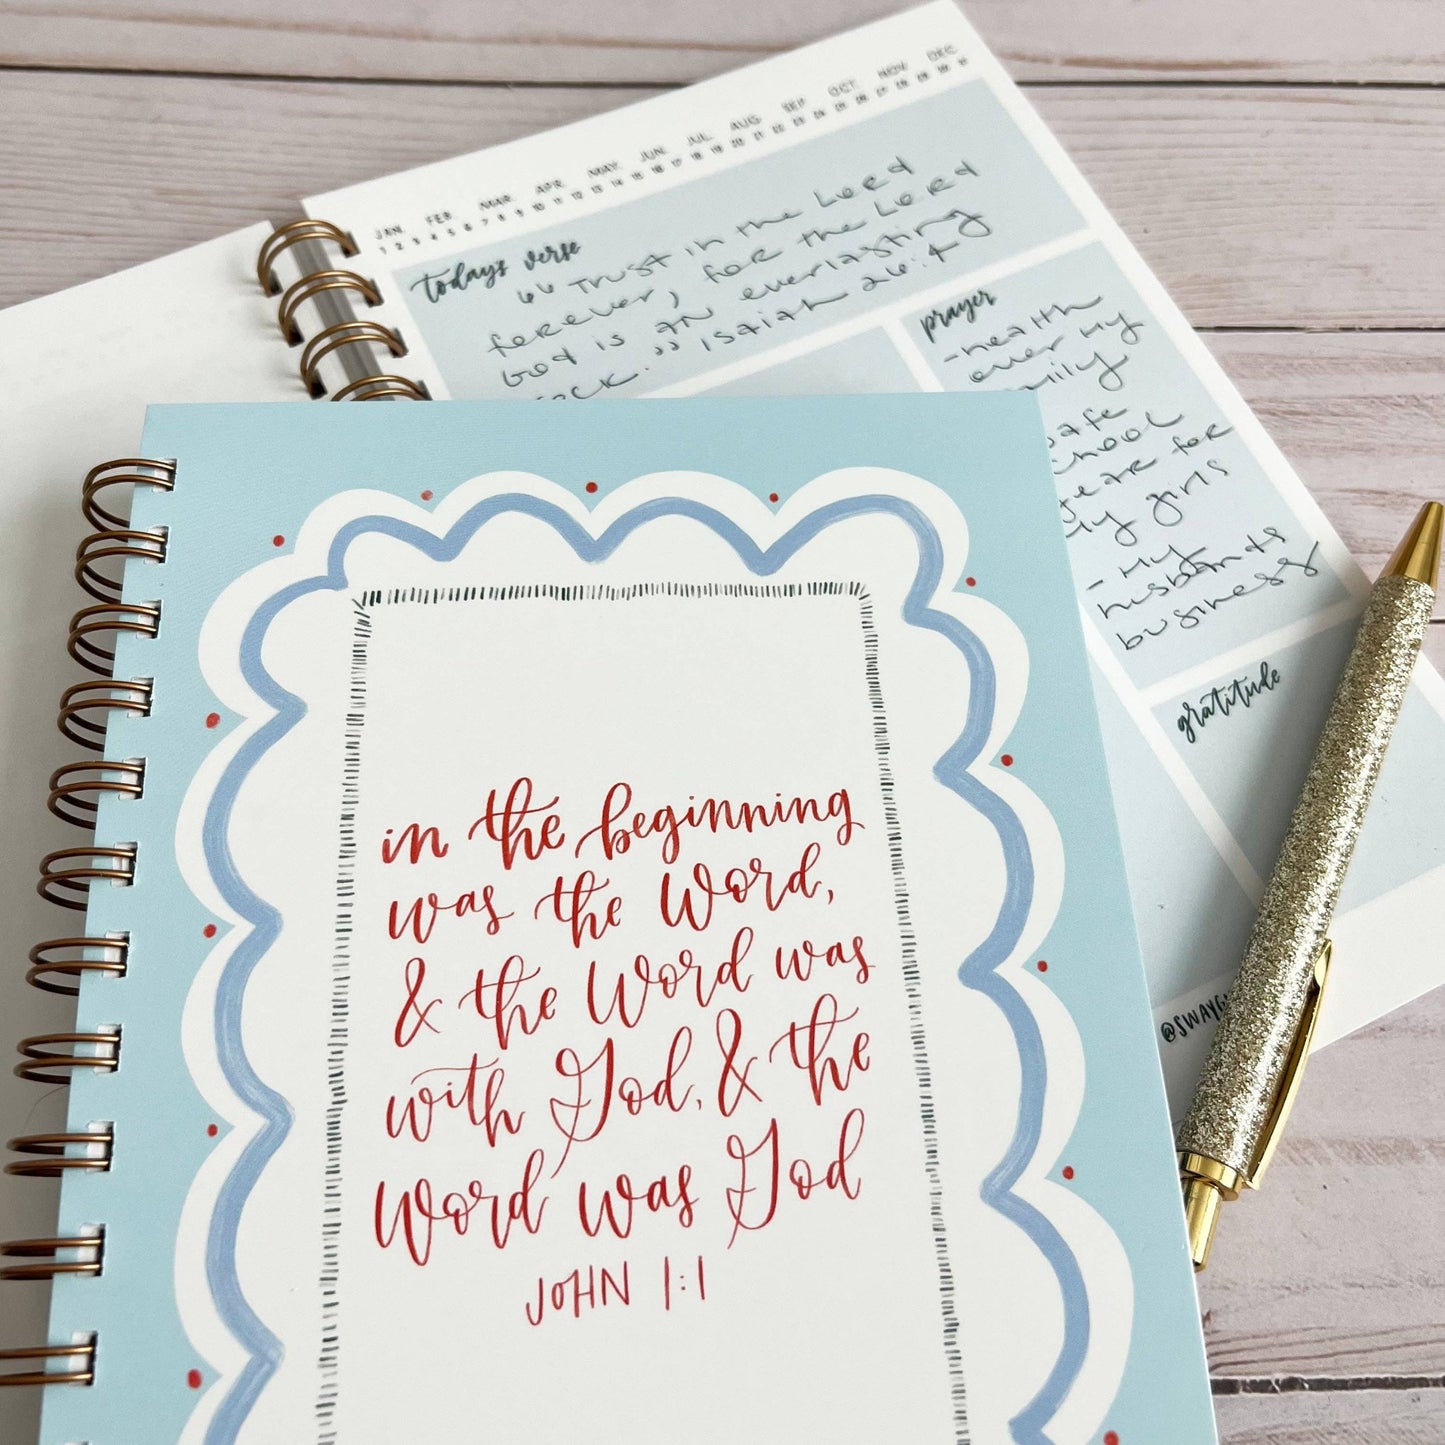 JAN. FEB. MAR. APR. MAY. JUN. JUL. AUG. SEP. OCT. NOV. DEC.
1 2 3 4 5 6 7 8 9 10 11 12 13 14 15 16 17 18 19 20 21 22 23 24 25 26 27 28 29 30 31
today's verse
"Trust in the Lord
forever, for the Lord
God is an everlasting
Isaiah 26:4
prayer
-health
over my
school
year for
my girls
- My
husbands
business
gratitude
in the beginning
was the Word,
& the Word was
with God, & the
Word was God
JOHN 1:1